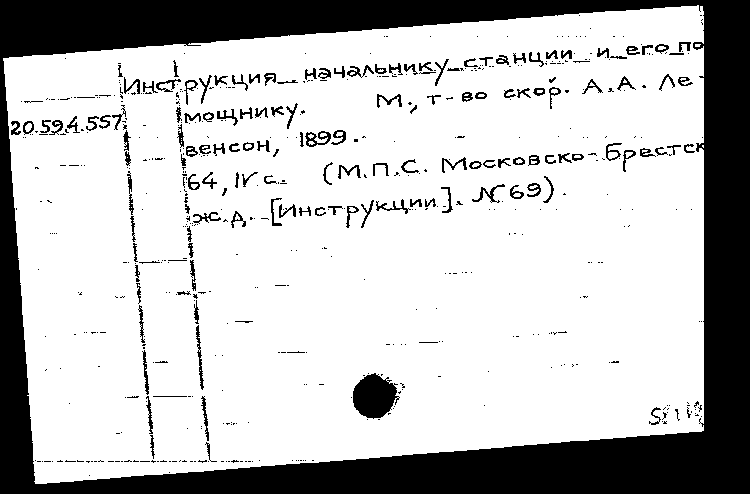 Инструкция начальнику станции и его по
20.594.557
мощнику. М., т-во скор. А.А. Ле-
венсон, 1899.
64, IV с. (М.П.С. Московско-Брестск
ж.д. [Инструкции]. № 69).